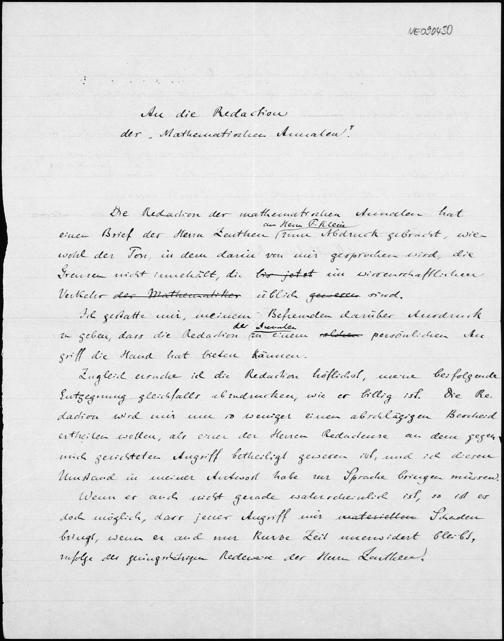 NEO90450
An die Redaction
der „Mathematischen Annalen".
Die Redaction der mathematischen Annalen hat
an Herrn F. Klein
einen Brief des Herrn Zeuthen zum Abdruck gebracht, wie-
wohl der Ton, in dem darin von mir gesprochen wird, die
Grenzen nicht innehält, die bis jetzt im wissenschaftlichen
Verkehr der Mathematiker üblich gewesen sind.
Ich gestatte mir, meinem Befremden darüber Ausdruck
der Annalen
zu geben, dass die Redaction zu einem solchen persönlichen An-
griff die Hand hat bieten können.
Zugleich ersuche ich die Redaction höflichst, meine beifolgende
Entgegnung gleichfalls abzudrucken, wie es billig ist. Die Re-
daction wird mir um so weniger einen abschlägigen Bescheid
ertheilen wollen, als einer der Herren Redacteure an dem gegen
mich gerichteten Angriff betheiligt gewesen ist, und ich diesen
Umstand in meiner Antwort habe zur Sprache bringen müssen.
Wenn es auch nicht gerade wahrscheinlich ist, so ist es
doch möglich, dass jener Angriff mir materiellen Schaden
bringt, wenn er auch nur kurze Zeit unerwidert bleibt,
zufolge der geringschätzigen Redeweise des Herrn Zeuthen.